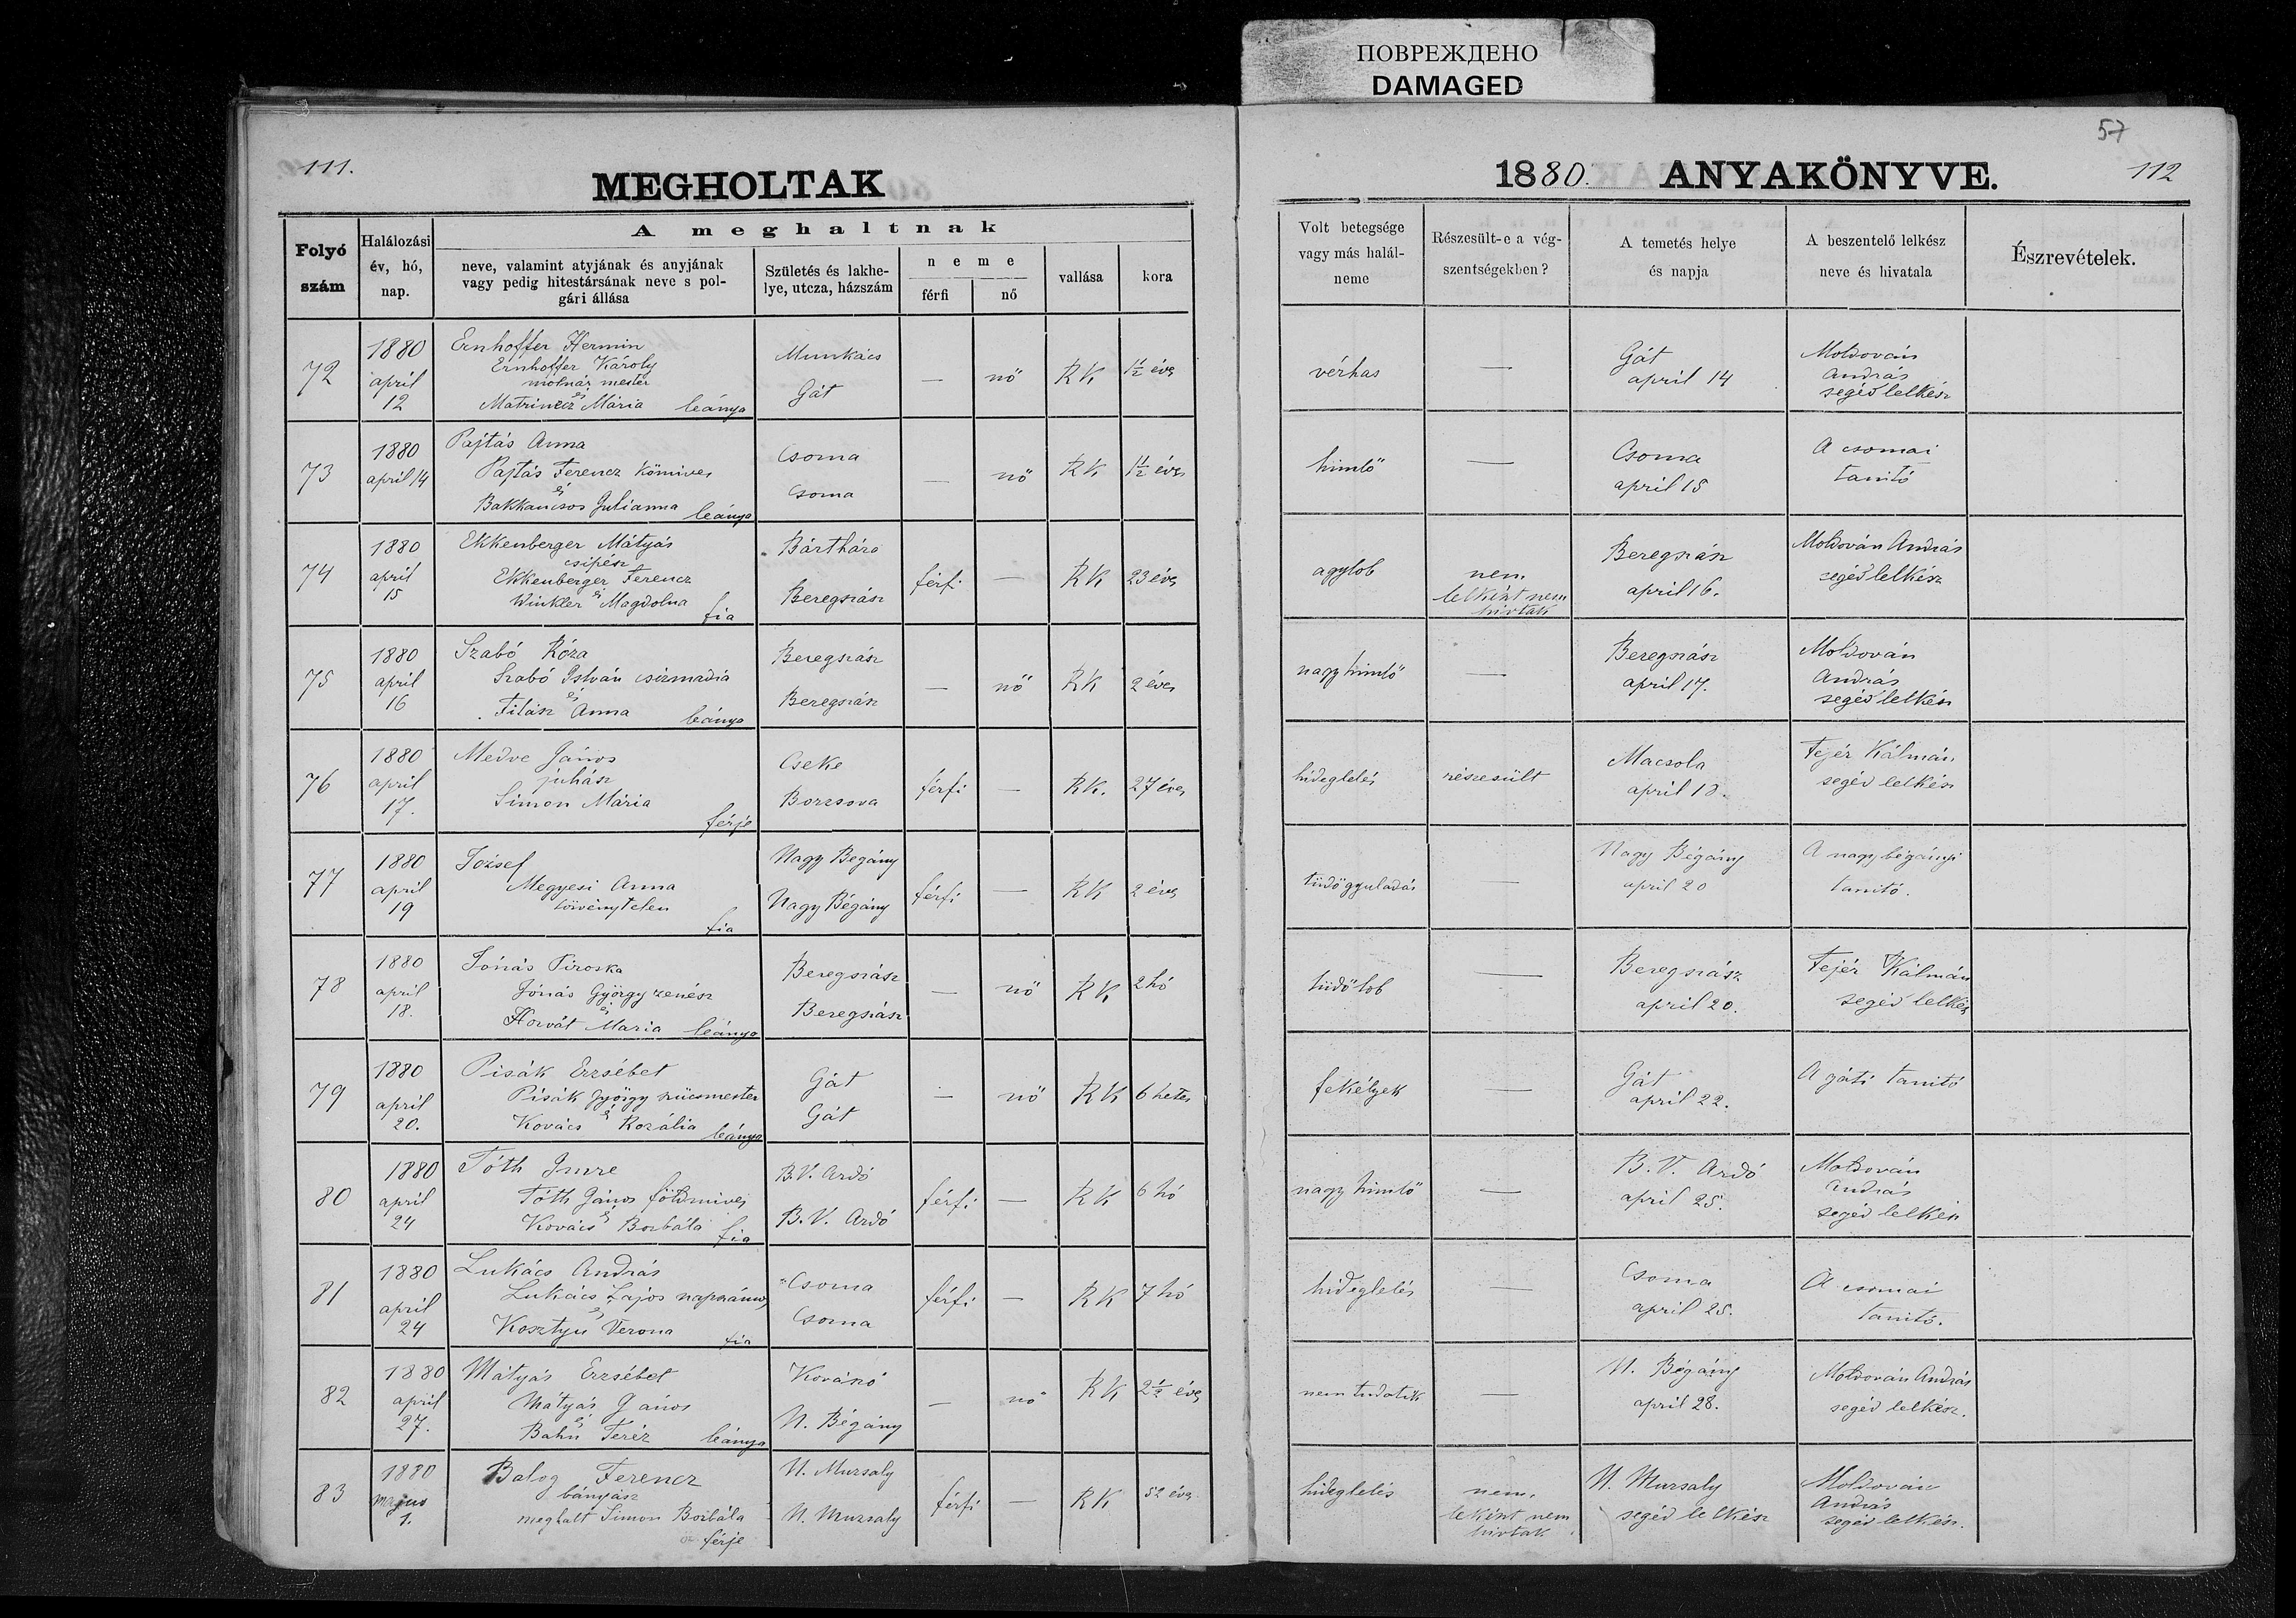 ПОВРЕЖДЕНО
DAMAGED
57
111.
MEGHOLTAK
1880. ANYAKÖNYVE.
112
Folyó szám
Halálozási év, hó, nap.
A meghaltnak
neve, valamint atyjának és anyjának
vagy pedig hitestársának neve s pol-
gári állása
Születés és lakhe-
lye, utcza, házszám
neme
férfi
nő
vallása
kora
Volt betegsége
vagy más halál-
neme
Részesült-e a vég-
szentségekben?
A temetés helye
és napja
A beszentelő lelkész
neve és hivatala
Észrevételek.
72
1880
april
12
Ernhoffer Hermin
Ernhoffer Károly
molnár mester
és
Matrincz Mária leánya
Munkács
Gát
—
nő
RK
1½ éves
vérhas
—
Gát
april 14
Moldován
András
segéd lelkész
73
1880
april 14
Pajtás Anna
Pajtás Ferencz kőmives
és
Bakkancsos Julianna leánya
Csoma
Csoma
—
nő
RK
1½ éves
himlő
—
Csoma
april 15
A csomai
tanitó
74
1880
april
15
Ekkenberger Mátyás
csipész
Ekkenberger Ferencz
és
Winkler Magdolna fia
Bártháza
Beregszász
férfi
—
RK
23 éves
agylob
nem
lelkészt nem
hivtak
Beregszász
april 16.
Moldován András
segéd lelkész
75
1880
april
16
Szabó Róza
Szabó István csizmadia
és
Filász Anna leánya
Beregszász
Beregszász
—
nő
RK
2 éves
nagy himlő
—
Beregszász
april 17.
Moldován
András
segéd lelkész
76
1880
april
17.
Medve János
juhász
Simon Mária
férje
Cseke
Borzsova
férfi
—
RK.
27 éves
hideglelés
részesült
Macsola
april 18.
Fejér Kálmán
segéd lelkész
77
1880
april
19
József
Megyesi Anna
törvénytelen
fia
Nagy Bégány
Nagy Bégány
férfi
—
RK
2 éves
tüdőgyuladás
—
Nagy Bégány
april 20
A nagybégányi
tanitó.
78
1880
april
18.
Jónás Piroska
Jónás György zenész
és
Horvát Maria leánya
Beregszász
Beregszász
—
nő
RK
2 hó
tüdőlob
—
Beregszász
april 20.
Fejér Kálmán
segéd lelkész
79
1880
april
20.
Pisák Erzsébet
Pisák György szücsmester
és
Kovács Rozália leánya
Gát
Gát
—
nő
RK
6 hetes
fekélyek
—
Gát
april 22.
A gáti tanitó
80
1880
april
24
Tóth Imre
Tóth János földmives
és
Kovács Borbála fia
B.V. Ardó
B.V. Ardó
férfi
—
RK
6 hó
nagy himlő
—
B.V. Ardó
april 25.
Moldován
András
segéd lelkész
81
1880
april
24
Lukács András
Lukács Lajos napszámos
és
Kosztyu Verona fia
Csoma
Csoma
férfi
—
RK
7 hó
hideglelés
—
Csoma
april 25.
A csomai
tanitó.
82
1880
april
27.
Mátyás Erzsébet
Mátyás János
és
Bahu Teréz leánya
Kovászó
N. Bégány
—
nő
RK
2½ éves
nem tudatik
—
N. Bégány
april 28.
Moldován András
segéd lelkész.
83
1880
majus
1.
Balog Ferencz
bányász
meghalt Simon Borbála
férje
N. Muzsaly
N. Muzsaly
férfi
—
RK
52 éves
hideglelés
nem.
lelkészt nem
hivtak
N. Muzsaly
segéd lelkész
Moldován
András
segéd lelkész.